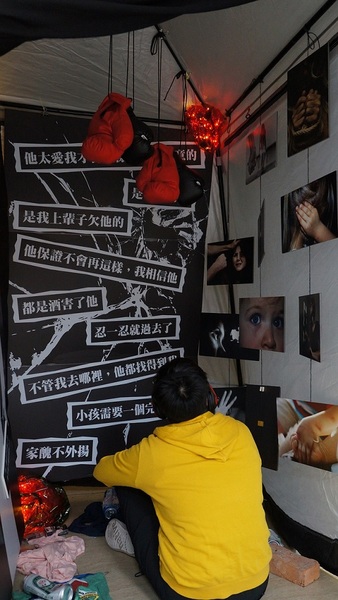 他太愛我才 意的
是
是我上輩子欠他的
他保證不會再這樣，我相信他
都是酒害了他
忍一忍就過去了
不管我去哪裡，他都找得到我
小孩需要一個完
家醜不外揚